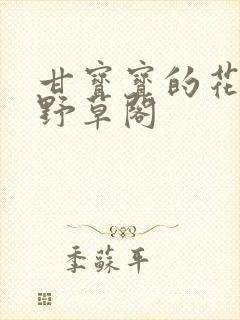 甘寶寶的花
野草閣
季蘇平